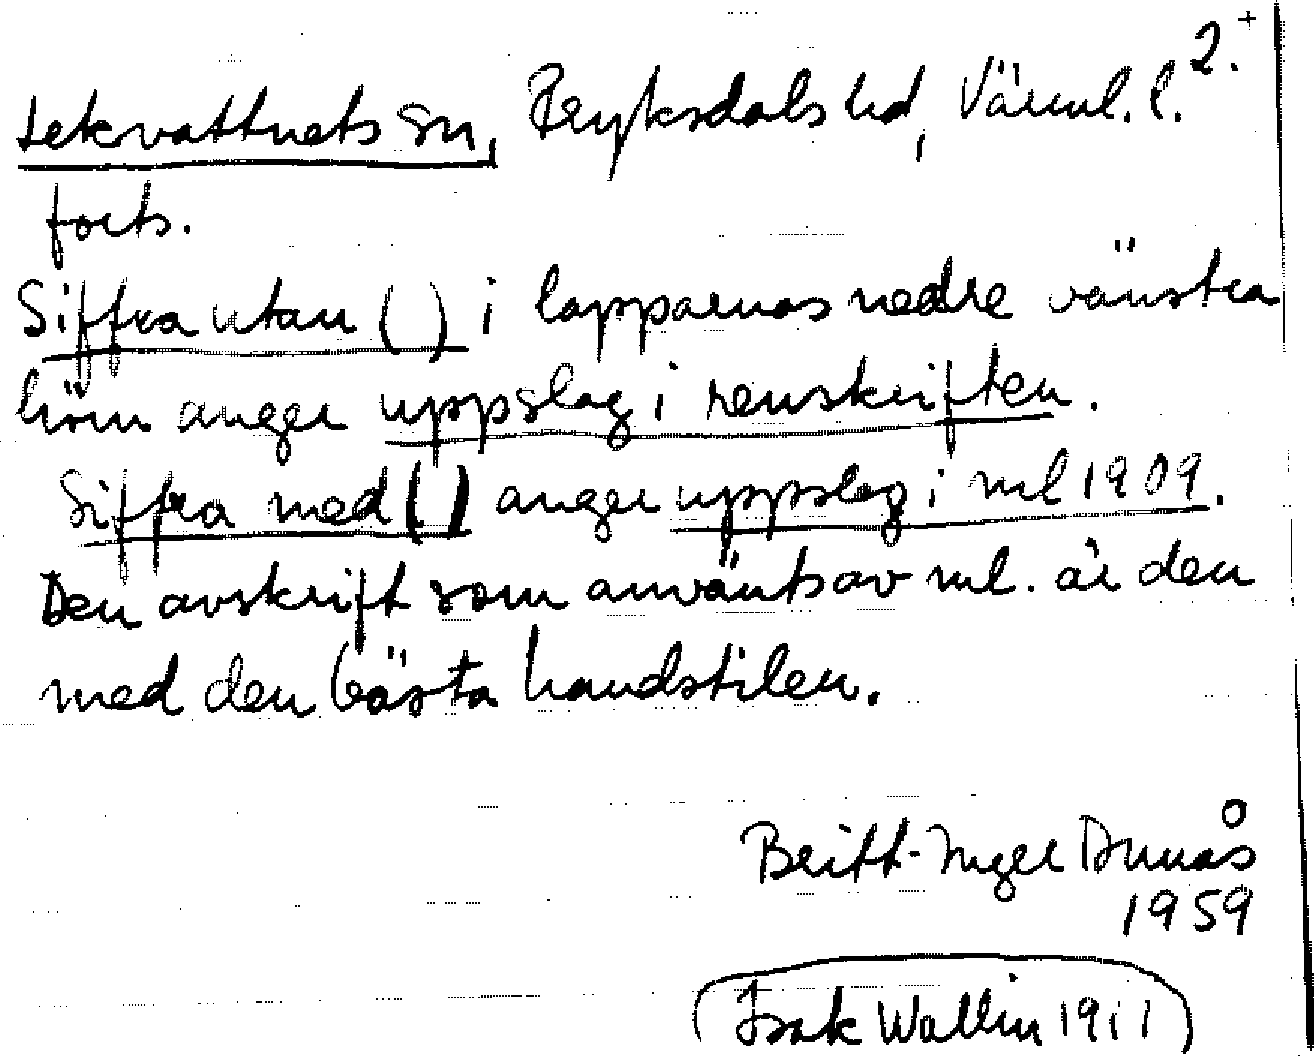 Lekvattnets sn, Fryksdals hd, Värml. l. 2.+
forts.
Siffra utan ( ) i lapparnas nedre vänstra
hörn anger uppslag i renskriften.
Siffra med ( ) anger uppslag i ml 1909.
Den avskrift som använts av ml. är den
med den bästa handstilen.
Britt-Inger
1959
(Isak Wallin 1911)